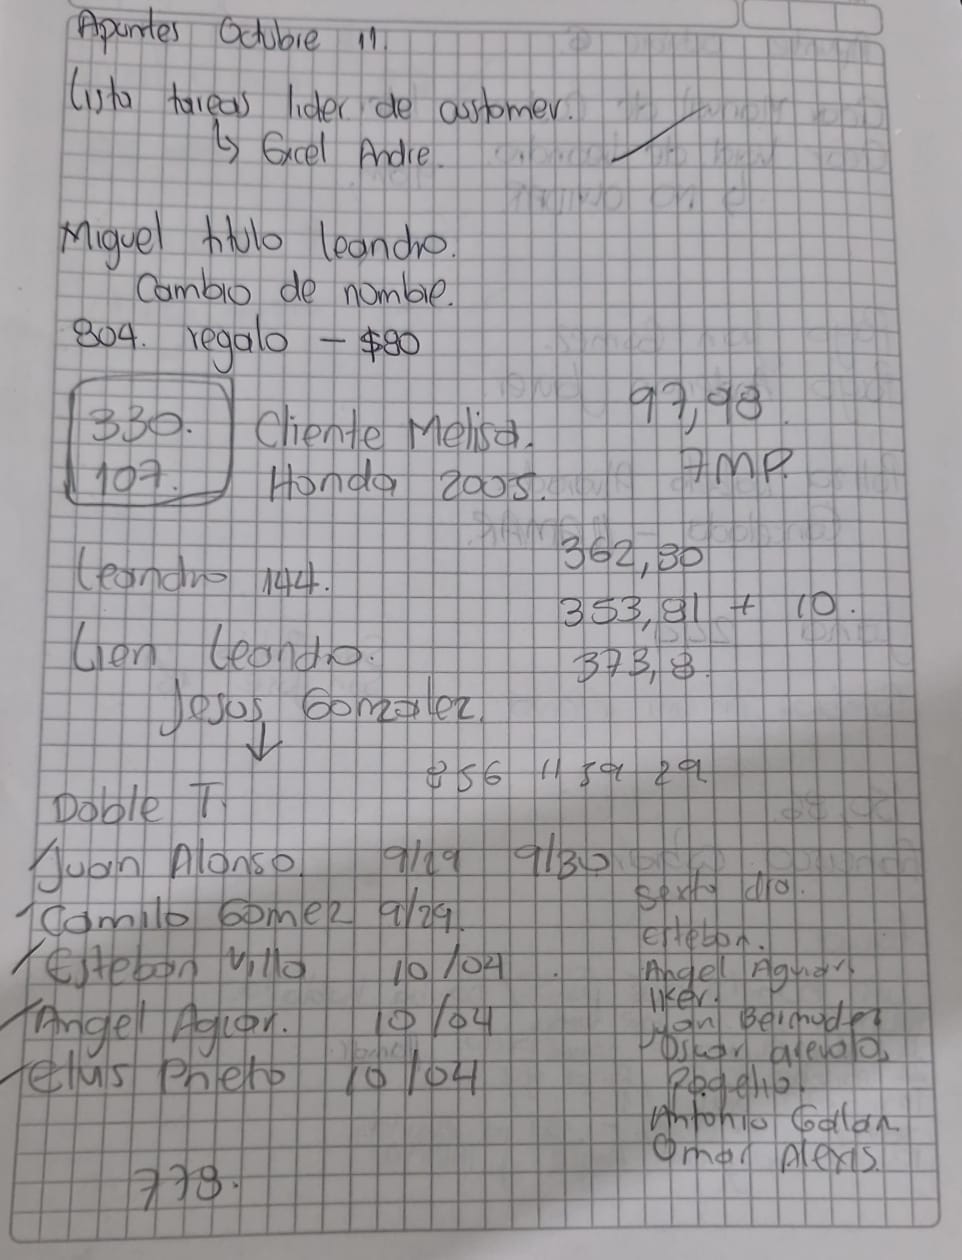 Apuntes Octubre 11.
Lista tareas lider de customer.
↳ Excel Andre.
Miguel titulo leandro.
Cambio de nombre.
804. regalo - $80
97,98.
330. Cliente Melisa.
107. Honda 2005.
7MP.
362,80
Leandro 144.
353,81 + 10.
Lien Leandro.
373,8.
Jesus Gonzalez.
↓
856 11 59 29
Doble T.
Juan Alonso. 9/29 9/30
Camilo Gomez 9/29.
Esteban Villa 10/04.
Angel Aguar. 10/04
Prieto 10/04
sexto dia.
Esteban.
Angel Aguar.
Iker.
Bermudez
Oscar arevalo,
Rogelio.
Antonio
Omar Alexis.
778.